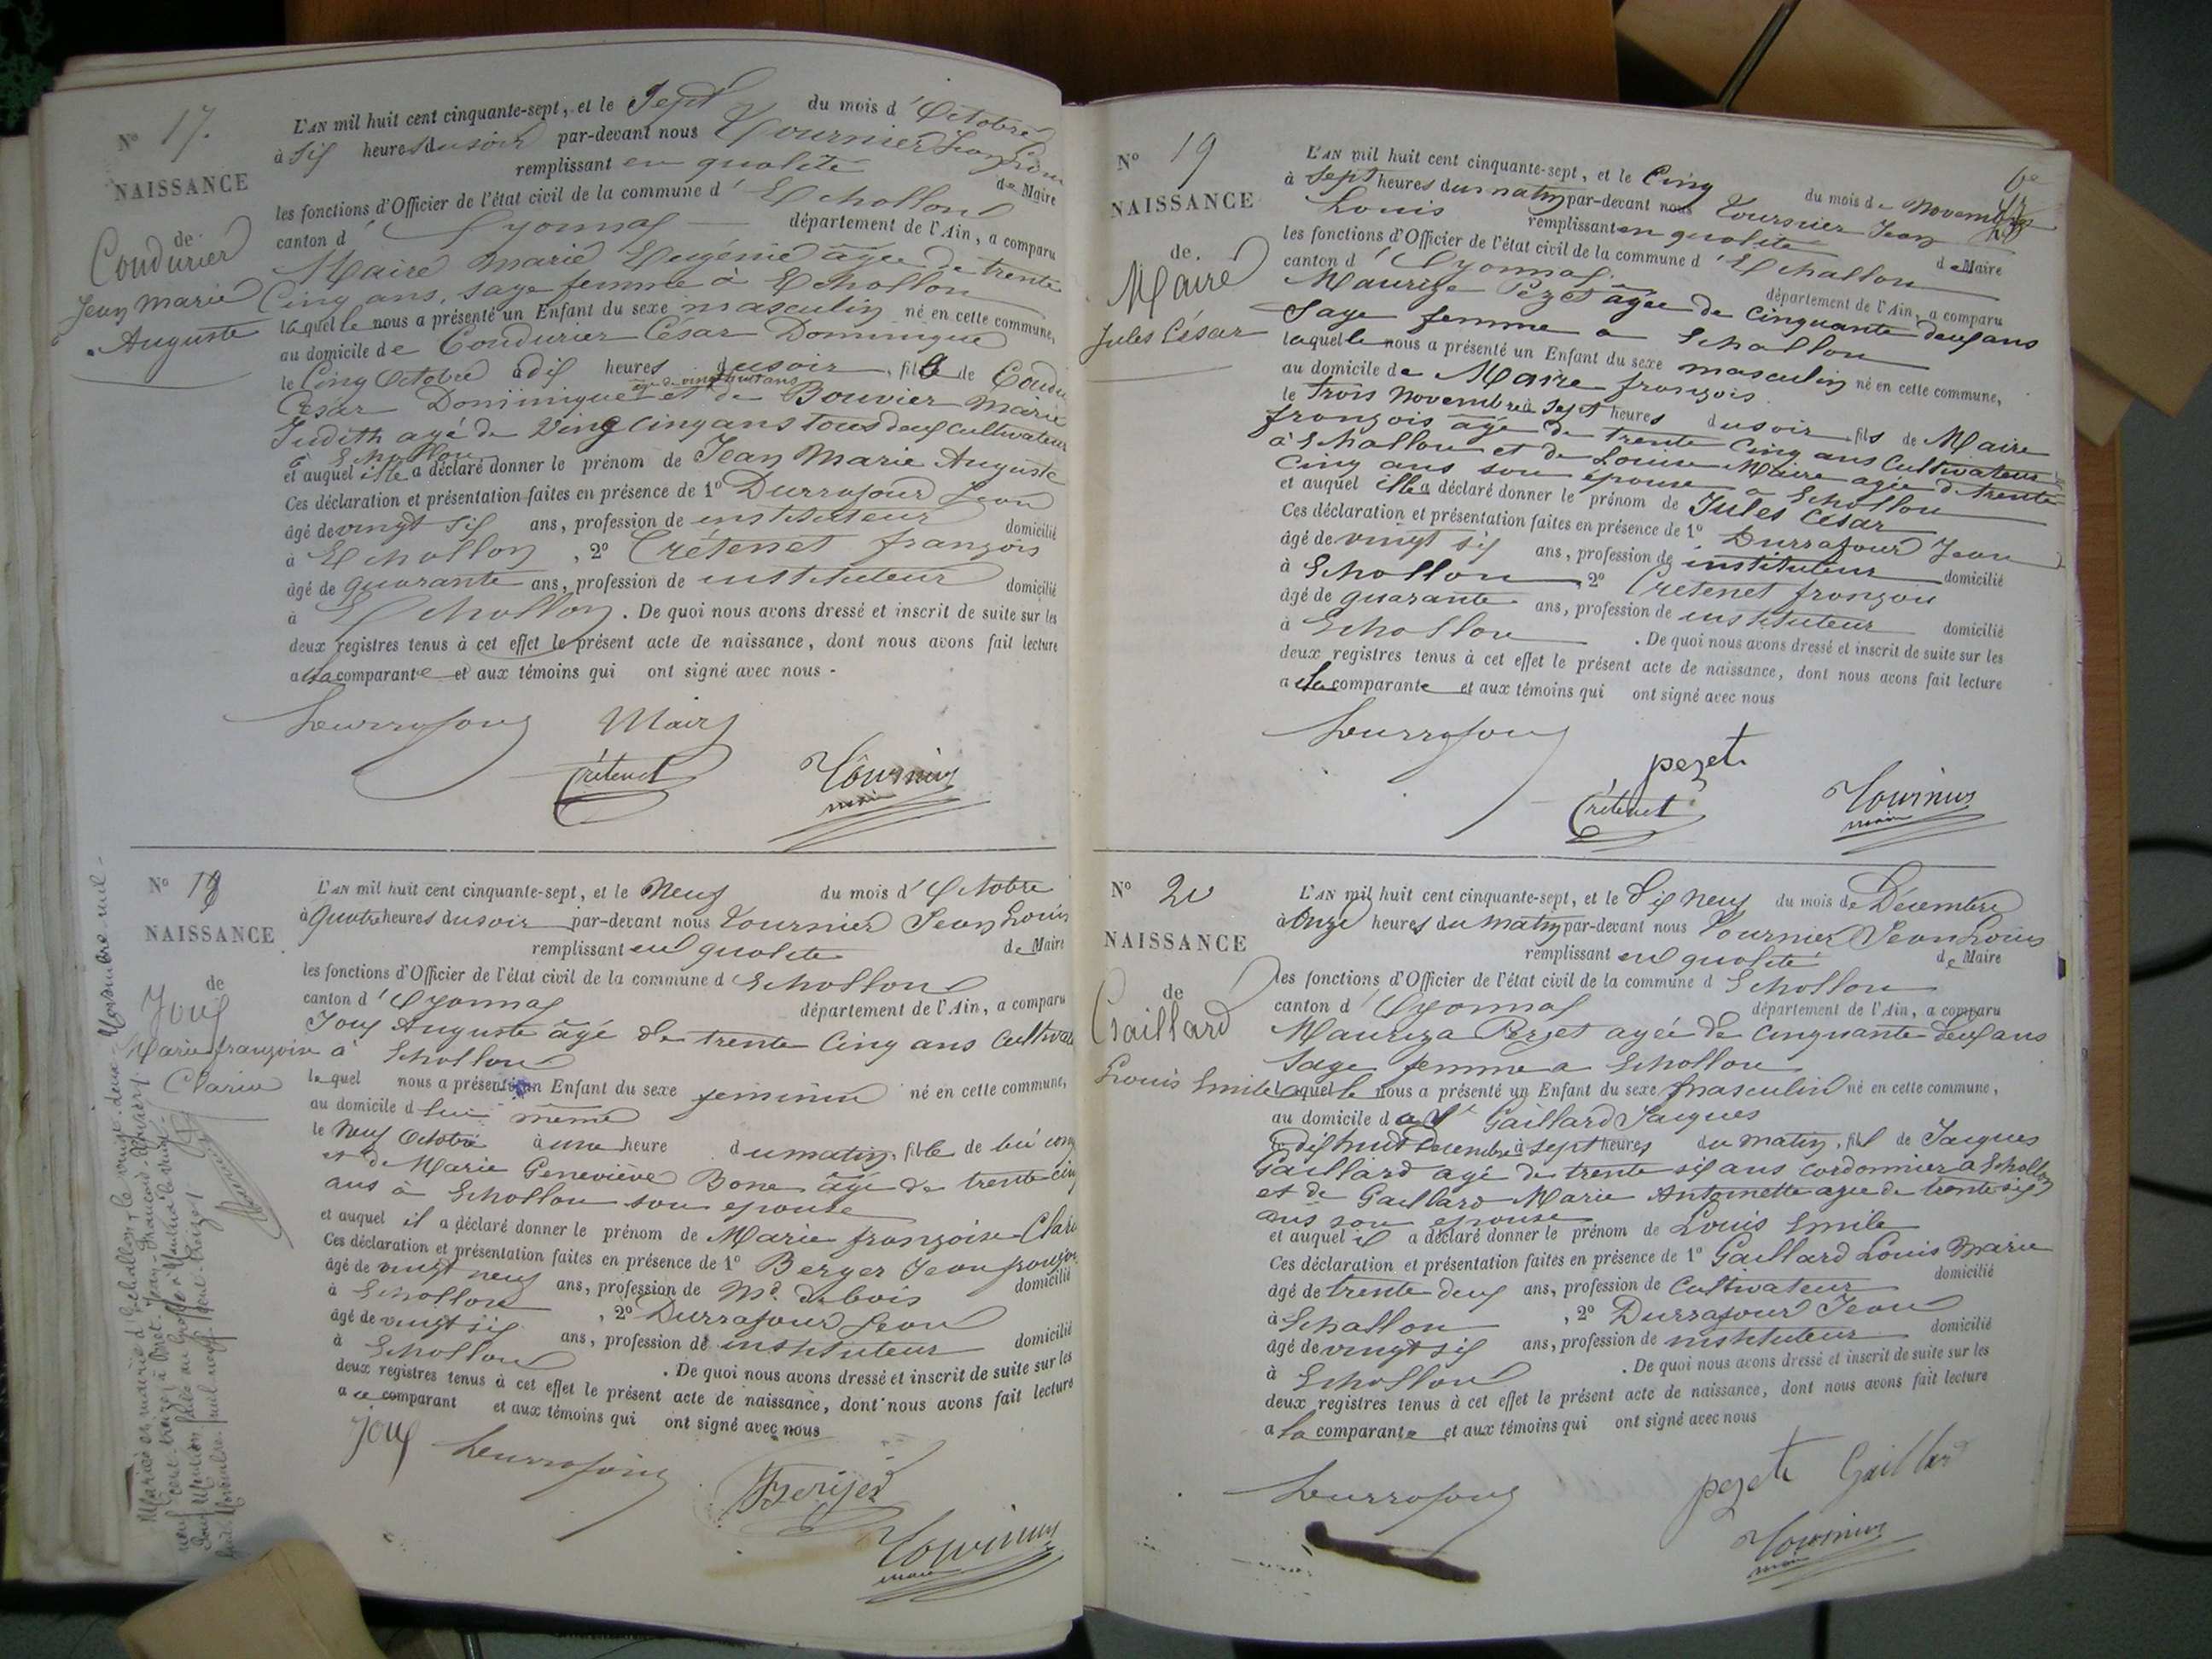 N° 17.
NAISSANCE
de
Condurier
Jean Marie
Auguste
L'AN mil huit cent cinquante-sept, et le Sept du mois d'Octobre
à Six heures du soir par-devant nous Tournier Jean Louis
remplissant en qualité de Maire
les fonctions d'Officier de l'état civil de la commune d'Echallon
canton d'Oyonnax département de l'Ain, a comparu
Maire Marie Eugénie âgée de trente
Cinq ans, sage femme à Echallon
laquelle nous a présenté un Enfant du sexe masculin né en cette commune,
au domicile de Condurier César Dominique
le Cinq Octobre à dix heures du soir, fils de Condu
César Dominique âgé de vingt huit ans et de Bouvier Marie
Judith agé de Ving Cinq ans tous deux Cultivateur
à Echallon
et auquel elle a déclaré donner le prénom de Jean Marie Auguste
Ces déclaration et présentation faites en présence de 1° Durrafour Jean
âgé de vingt six ans, profession de instituteur domicilié
à Echallon, 2° Crétenet françois
âgé de quarante ans, profession de instituteur domicilié
à Echallon. De quoi nous avons dressé et inscrit de suite sur les
deux registres tenus à cet effet le présent acte de naissance, dont nous avons fait lecture
a la comparante et aux témoins qui ont signé avec nous -
Durrafour Maire
Crétenet Tournier
maire
N° 18
NAISSANCE
de
Joux
Marie françoise
Clarice
L'AN mil huit cent cinquante-sept, et le Neuf du mois d'Octobre
à Quatre heures du soir par-devant nous Tournier Jean Louis
remplissant en qualité de Maire
les fonctions d'Officier de l'état civil de la commune d Echallon
canton d'Oyonnax département de l'Ain, a comparu
Joux Auguste âgé de trente Cinq ans Cultivat
à Echallon
lequel nous a présenté un Enfant du sexe feminin né en cette commune,
au domicile d lui même
le Neuf Octobre à une heure du matin, fille de lui com
et de Marie Geneviève Bone âgé de trente cinq
ans à Echallon son epouse
et auquel il a déclaré donner le prénom de Marie françoise Clari
Ces déclaration et présentation faites en présence de 1° Berger Jean françois
âgé de vingt neuf ans, profession de Md. de bois domicilié
à Echallon, 2° Durrafour Jean
âgé de vingt six ans, profession de instituteur domicilié
à Echallon. De quoi nous avons dressé et inscrit de suite sur les
deux registres tenus à cet effet le présent acte de naissance, dont nous avons fait lecture
a ce comparant et aux témoins qui ont signé avec nous
Joux Durrafour
Berger
Tournier
maire
N° 19
NAISSANCE
de.
Maire
Jules César
L'AN mil huit cent cinquante-sept, et le Cinq du mois de Novembre
à Sept heures du matin par-devant nous Tournier Jean
Louis remplissant en qualité de Maire
les fonctions d'Officier de l'état civil de la commune d'Echallon
canton d'Oyonnax. département de l'Ain, a comparu
Maurize Pezet âgée de Cinquante deux ans
Sage femme a Echallon
laquelle nous a présenté un Enfant du sexe masculin né en cette commune,
au domicile de Maire françois
le trois Novembre à Sept heures du soir fils de Maire
françois âgé de trente Cinq ans Cultivateur
à Echallon et de Louise Maire agée de trente
Cinq ans son épouse à Echallon
et auquel elle a déclaré donner le prénom de Jules César
Ces déclaration et présentation faites en présence de 1° Durrafour Jean
âgé de vingt six ans, profession de instituteur domicilié
à Echallon, 2° Cretenet françois
âgé de quarante ans, profession de instituteur domicilié
à Echallon. De quoi nous avons dressé et inscrit de suite sur les
deux registres tenus à cet effet le présent acte de naissance, dont nous avons fait lecture
a la comparante et aux témoins qui ont signé avec nous
Durrafour
pezet
Crétenet Tournier
maire
N° 20
NAISSANCE
de
Gaillard
Louis Emile
L'AN mil huit cent cinquante-sept, et le Dix Neuf du mois de Décembre
à Onze heures du Matin par-devant nous Tournier Jean Louis
remplissant en qualité de Maire
les fonctions d'Officier de l'état civil de la commune d Echallon
canton d'Oyonnax département de l'Ain, a comparu
Mauriza Pezet agée de cinquante deux ans
Sage femme a Echallon
laquelle nous a présenté un Enfant du sexe masculin né en cette commune,
au domicile d Gaillard Jacques
le dix huit Decembre à sept heures du matin, fils de Jacques
Gaillard agé de trente six ans cordonnier a Echallon
et de Gaillard Marie Antoinette agée de trente six
ans son epouse
et auquel il a déclaré donner le prénom de Louis Emile
Ces déclaration et présentation faites en présence de 1° Gaillard Louis Marie
âgé de trente deux ans, profession de Cultivateur domicilié
à Echallon, 2° Durrafour Jean
âgé de vingt six ans, profession de instituteur domicilié
à Echallon. De quoi nous avons dressé et inscrit de suite sur les
deux registres tenus à cet effet le présent acte de naissance, dont nous avons fait lecture
a la comparante et aux témoins qui ont signé avec nous
Durrafour pezet Gaillard
Tournier
maire